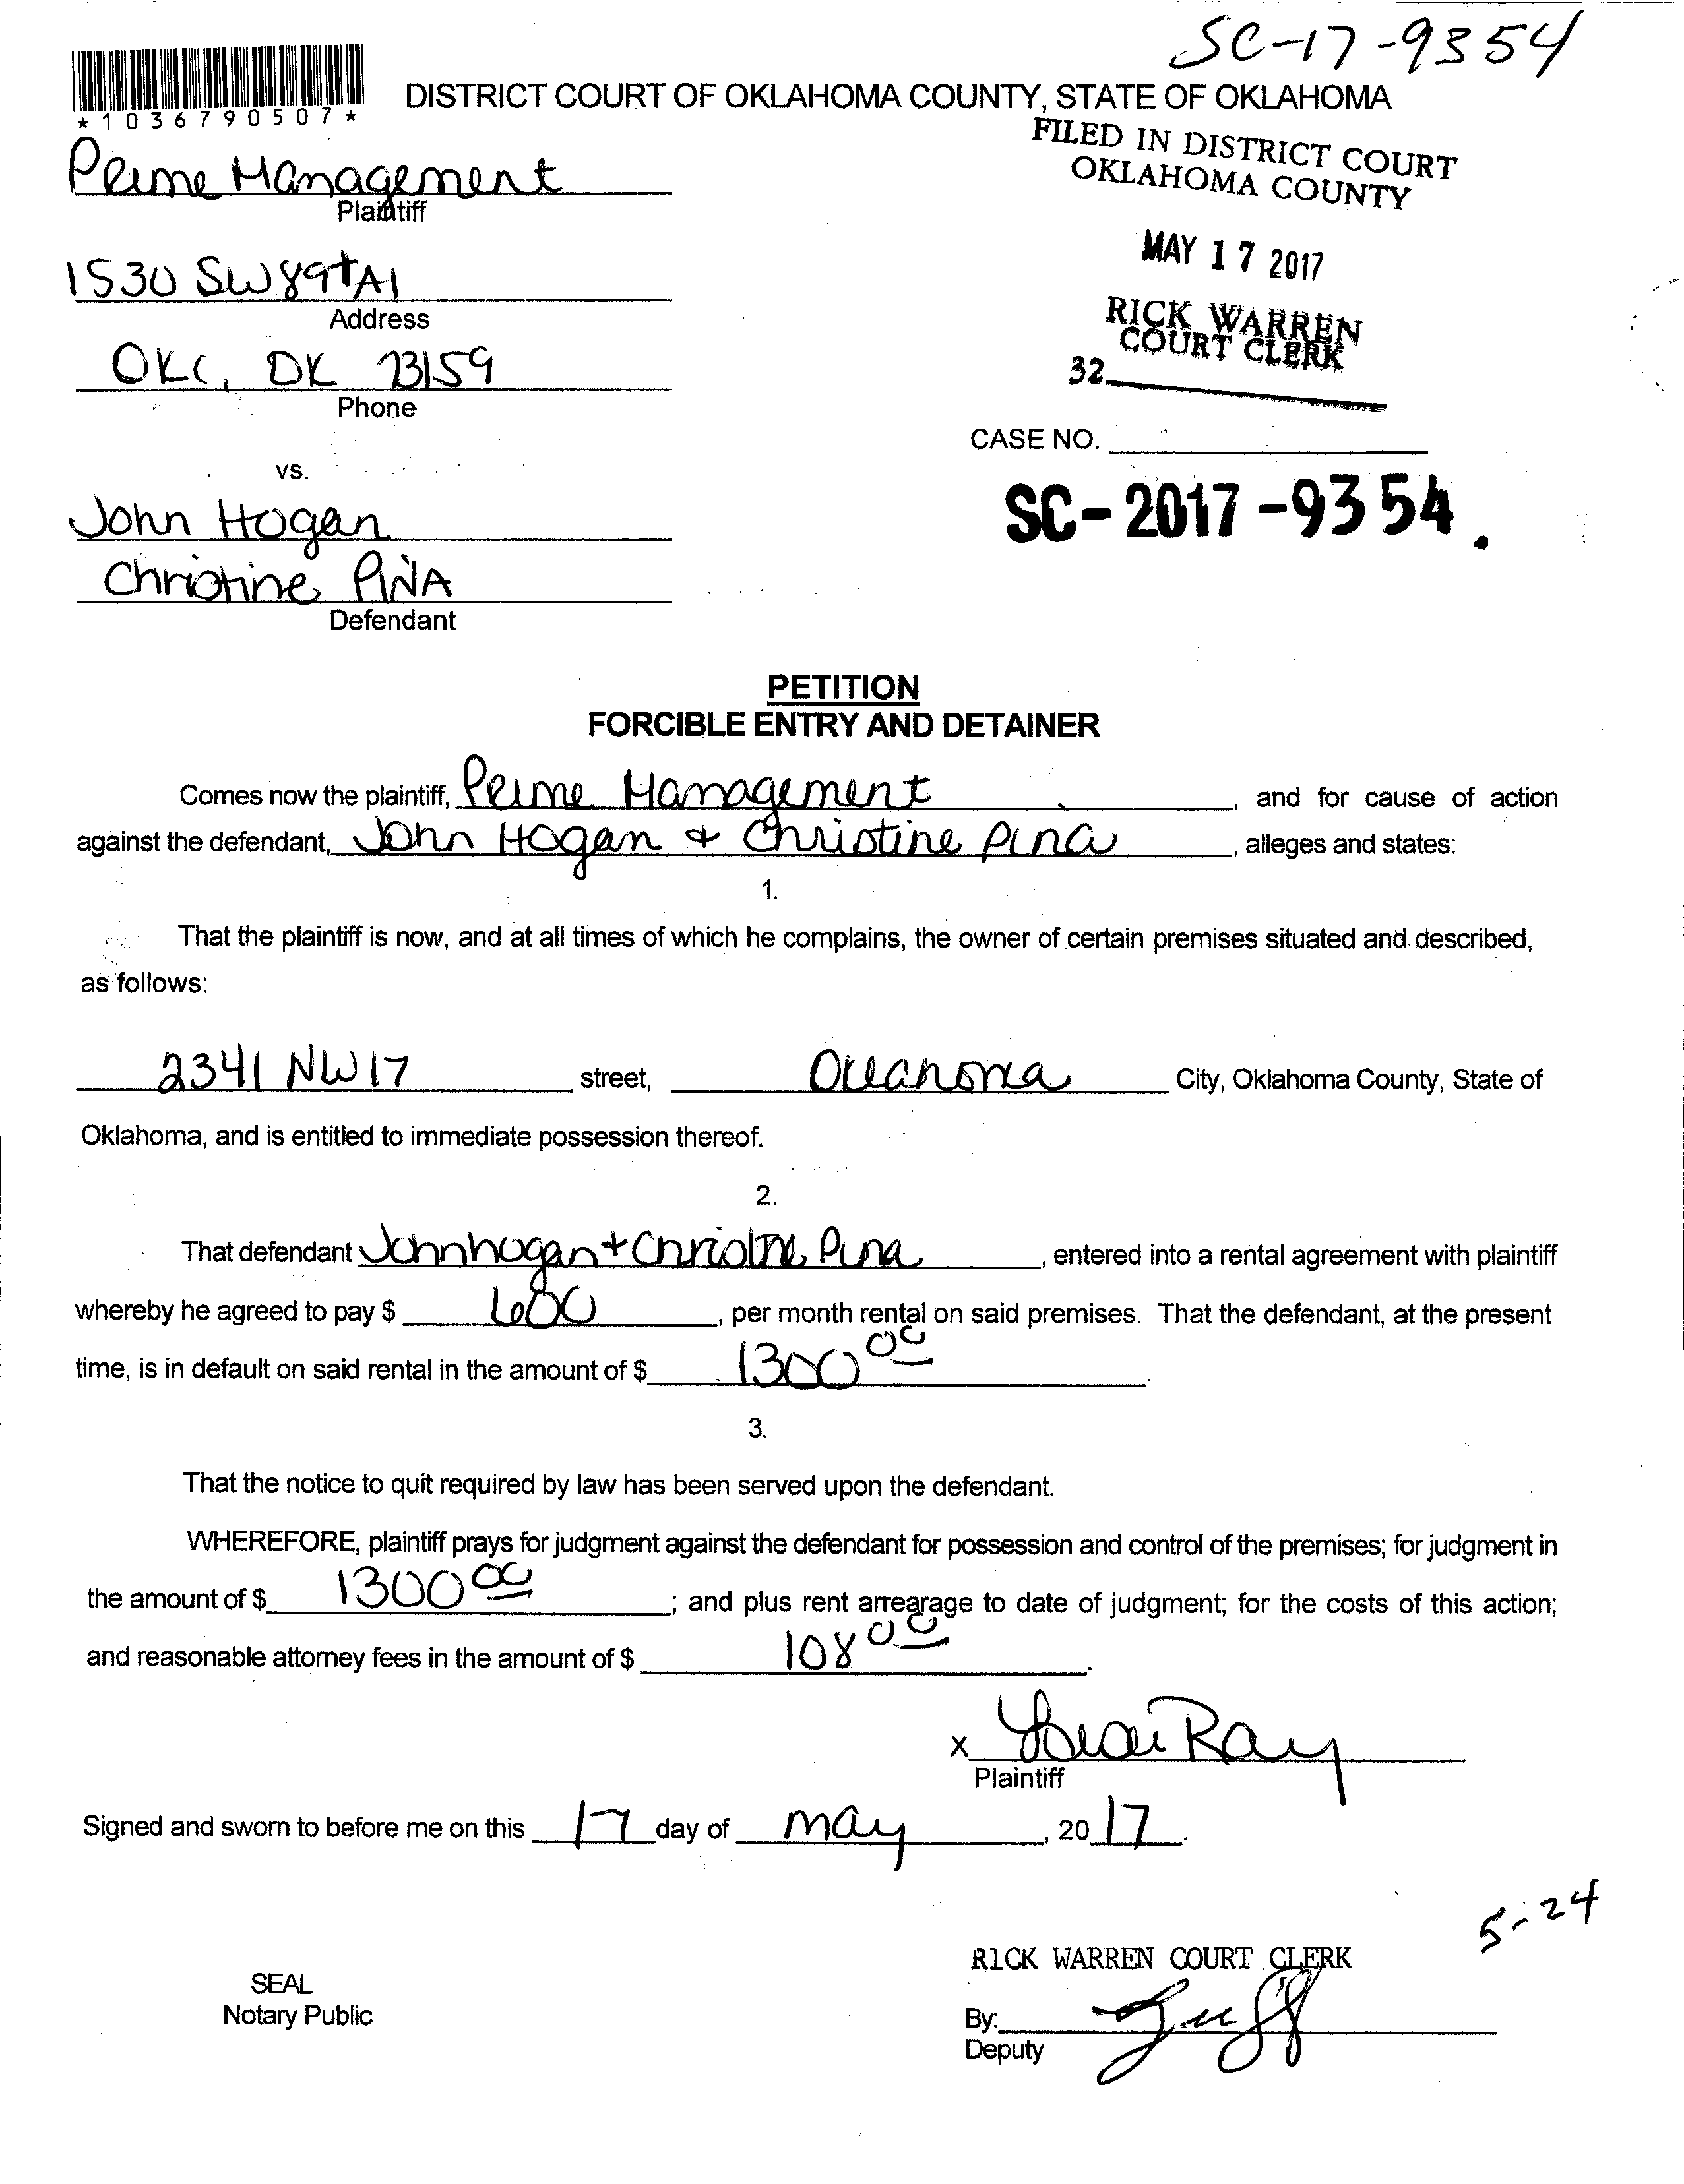 SC-17-9354
*1036790507*
DISTRICT COURT OF OKLAHOMA COUNTY, STATE OF OKLAHOMA
FILED IN DISTRICT COURT
OKLAHOMA COUNTY
Prime Management
Plaintiff
MAY 17 2017
1530 SW 89th A1
Address
RICK WARREN
COURT CLERK
32
OKC, OK 73159
Phone
CASE NO.
vs.
SC-2017-9354.
John Hogan
Christine PINA
Defendant
PETITION
FORCIBLE ENTRY AND DETAINER
Comes now the plaintiff, Prime Management, and for cause of action
against the defendant, John Hogan + Christine Pina, alleges and states:
1.
That the plaintiff is now, and at all times of which he complains, the owner of certain premises situated and described,
as follows:
2341 NW 17 street, Oklahoma City, Oklahoma County, State of
Oklahoma, and is entitled to immediate possession thereof.
2.
That defendant John hogan + Christine Pina, entered into a rental agreement with plaintiff
whereby he agreed to pay $ , per month rental on said premises. That the defendant, at the present
time, is in default on said rental in the amount of $ 1300 00.
3.
That the notice to quit required by law has been served upon the defendant.
WHEREFORE, plaintiff prays for judgment against the defendant for possession and control of the premises; for judgment in
the amount of $ 1300 00; and plus rent arrearage to date of judgment; for the costs of this action;
and reasonable attorney fees in the amount of $ 108 00.
x Ray
Plaintiff
Signed and sworn to before me on this 17 day of may, 20 17.
5-24
RICK WARREN COURT CLERK
SEAL
Notary Public
By:
Deputy